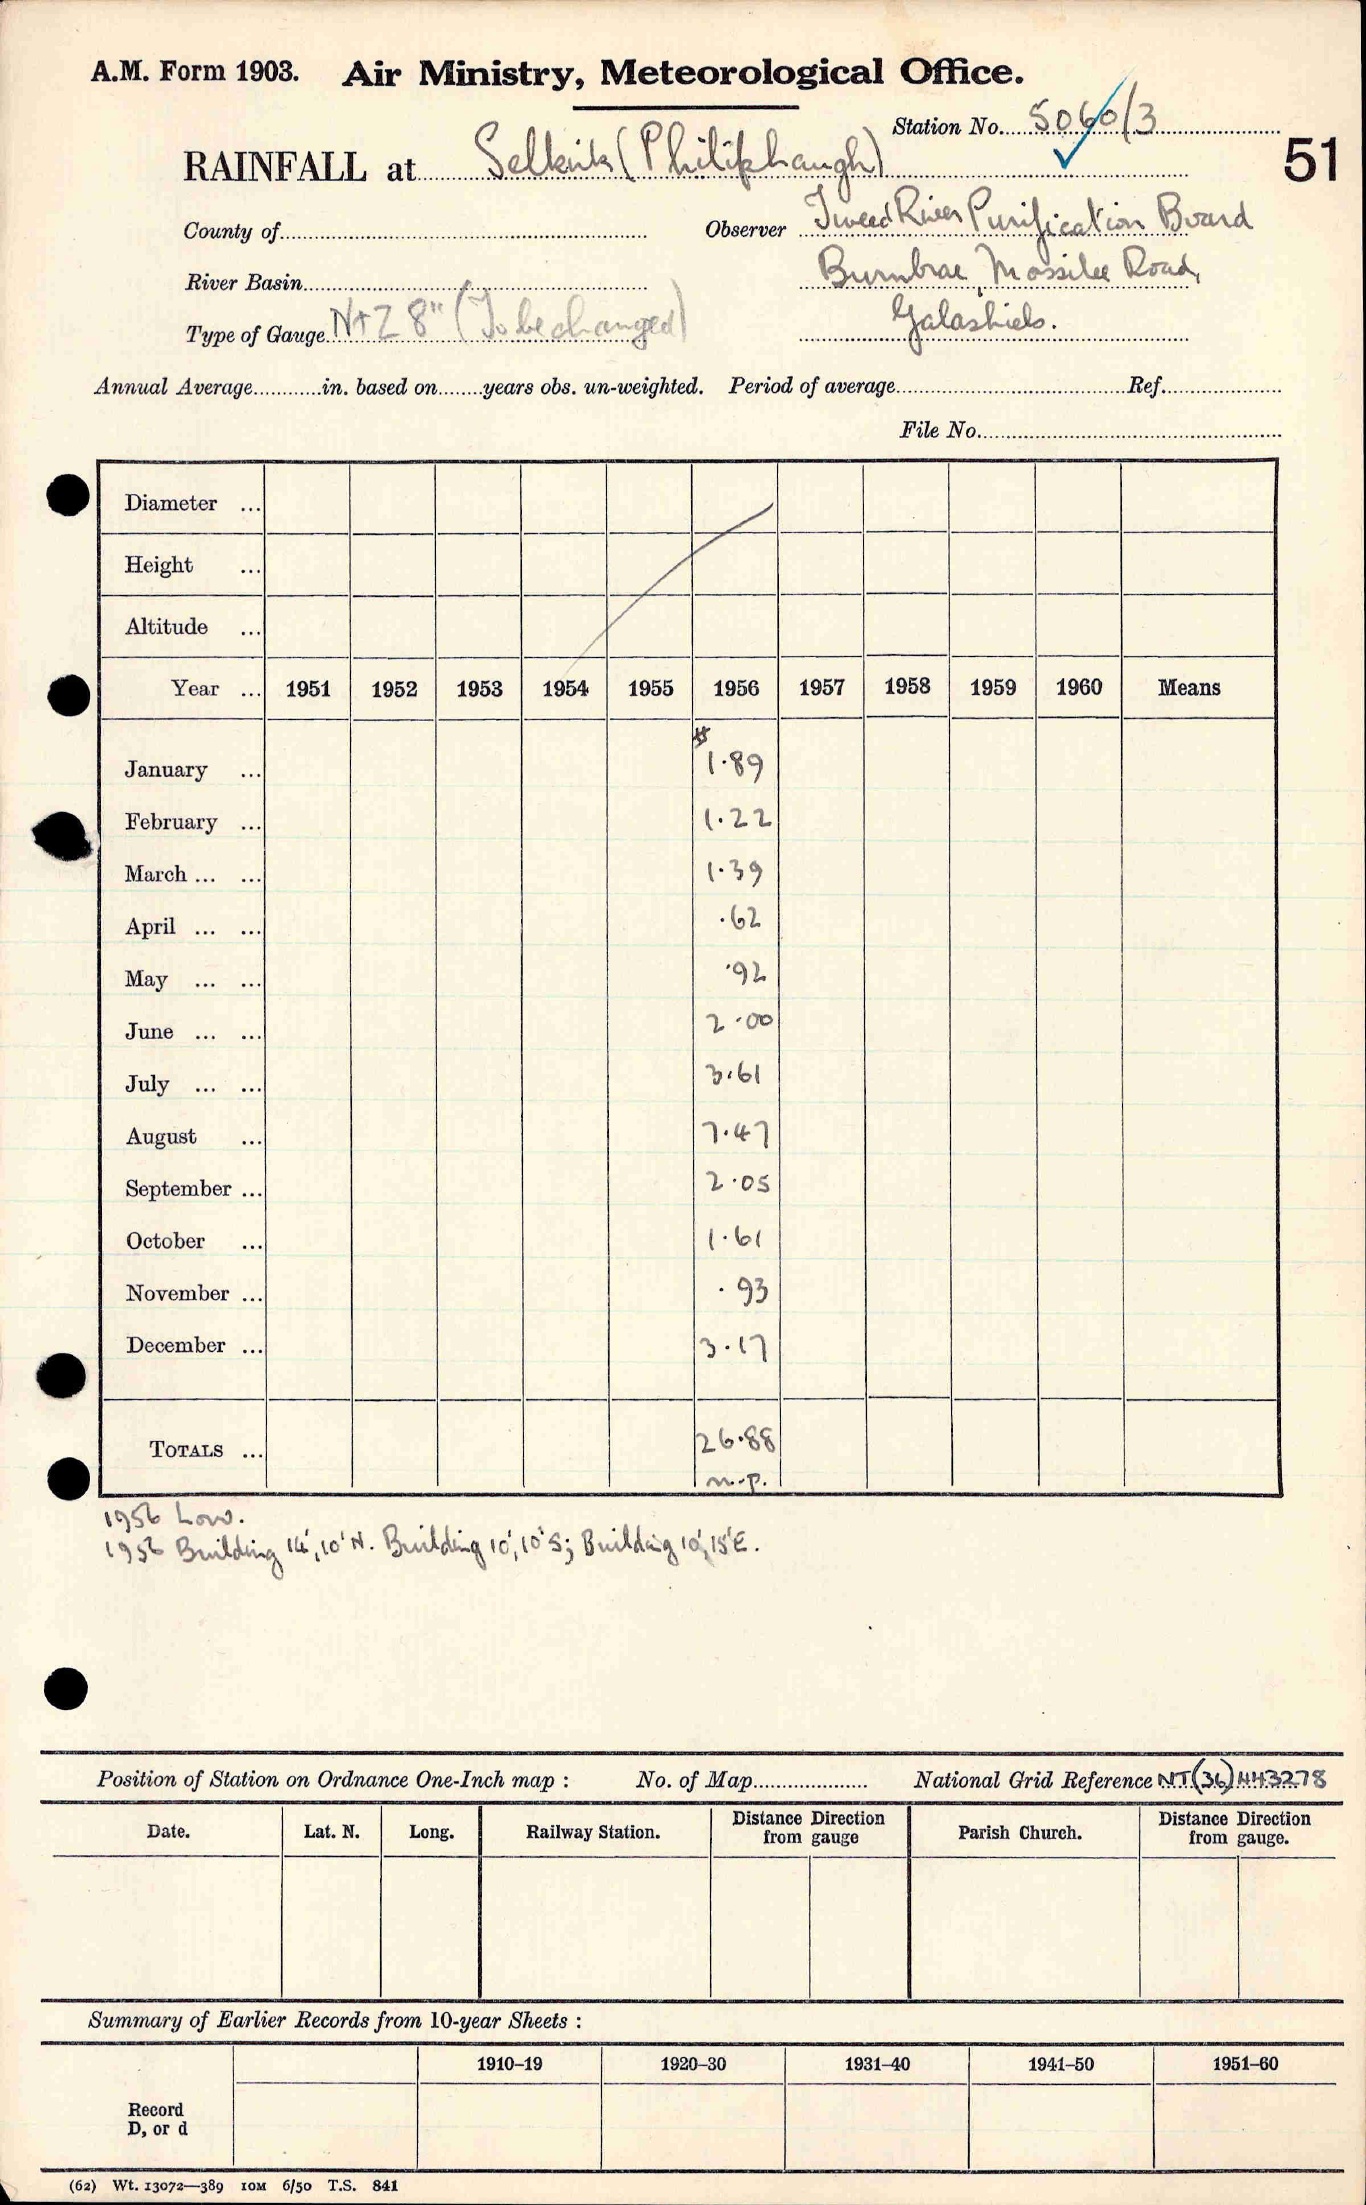 A.M. Form 1903. Air Ministry, Meteorological Office.
Station No. 5060/3
51
RAINFALL at Selkirk (Philiphaugh)
County of
Observer Tweed River Purification Board
River Basin
Burnbrae, Mossilee Road,
Type of Gauge N+Z 8" (To be changed)
Galashiels.
Annual Average in. based on years obs. un-weighted. Period of average Ref.
File No.
Diameter ...
Height ...
Altitude ...
Year ... 1951 1952 1953 1954 1955 1956 1957 1958 1959 1960 Means
January ... 1.89
February ... 1.22
March ... ... 1.39
April ... ... .62
May ... ... .92
June ... ... 2.00
July ... ... 3.61
August ... 7.47
September ... 2.05
October ... 1.61
November ... .93
December ... 3.17
TOTALS ... 26.88
n.p.
1956 Low.
1956 Building 14', 10' N. Building 10', 10' S; Building 10', 15' E.
Position of Station on Ordnance One-Inch map : No. of Map National Grid Reference NT(36)443278
Date. Lat. N. Long. Railway Station. Distance Direction from gauge Parish Church. Distance Direction from gauge.
Summary of Earlier Records from 10-year Sheets :
1910–19 1920–30 1931–40 1941–50 1951–60
Record
D, or d
(62) Wt. 13072—389 10M 6/50 T.S. 841